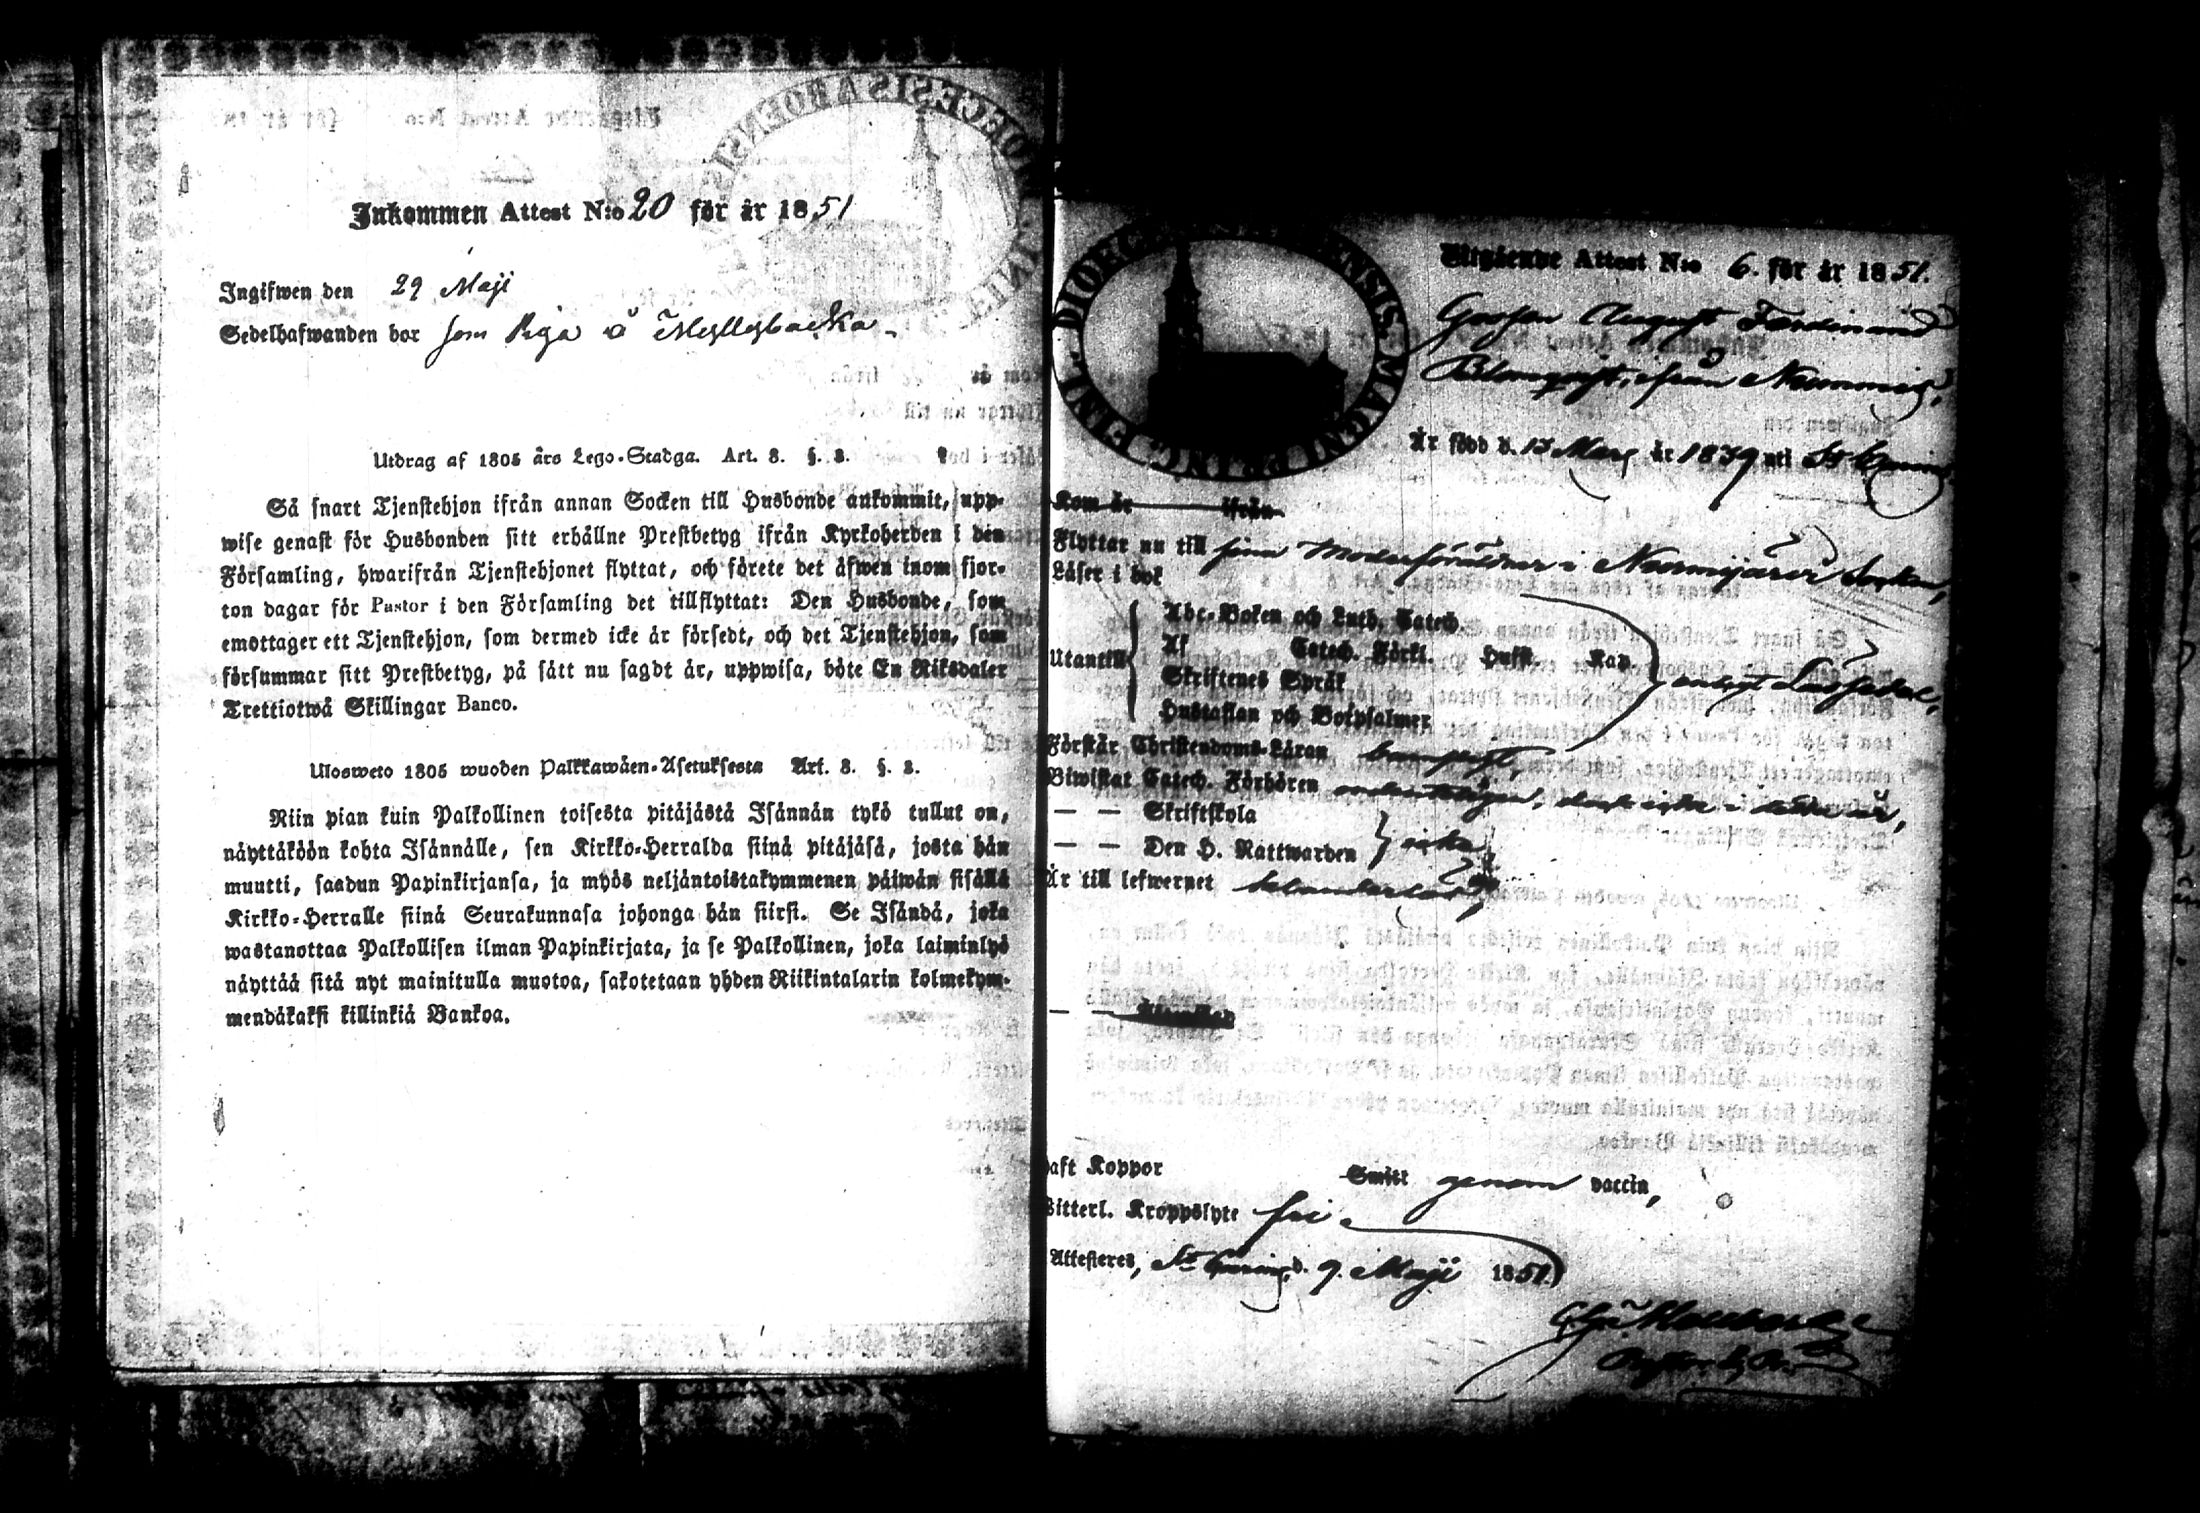 Inkommen Attest N:o 20 för år 1851
Ingifwen den 29 Maji
Sedelhafwanden bor som Piga å Myllybacka
Utdrag af 1805 års Lego-Stadga. Art. 3. §. 3.
Så snart Tjenstehjon ifrån annan Socken till Husbonde ankommit, upp-
wise genast för Husbonden sitt erhållne Prestbetyg ifrån Kyrkoherden i den
Församling, hwarifrån Tjenstehjonet flyttat, och förete det äfwen inom fjor-
ton dagar för Pastor i den Församling det tillflyttat: Den Husbonde, som
emottager ett Tjenstehjon, som dermed icke är försedt, och det Tjenstehjon, som
försummar sitt Prestbetyg, på sätt nu sagdt är, uppwisa, böte En Riksdaler
Trettiotwå Skillingar Banco.
Ulosweto 1805 wuoden Palkkawäen-Asetuksesta Art. 3. §. 3.
Niin pian kuin Palkollinen toisesta pitäjästä Isännän tykö tullut on,
näyttäköön kohta Isännälle, sen Kirkko-Herralda siinä pitäjäsä, josta hän
muutti, saadun Papinkirjansa, ja myös neljäntoistakymmenen päiwän sisällä
Kirkko-Herralle siinä Seurakunnasa johonga hän siirsi. Se Isändä, joka
wastanottaa Palkollisen ilman Papinkirjata, ja se Palkollinen, joka laiminlyö
näyttää sitä nyt mainitulla muotoa, sakotetaan yhden Riikintalarin kolmekym-
mendäkaksi killinkiä Bankoa.
DIOECESIS ABOENSIS. MAGNI PRINC. FINL.
Utgående Attest N:o 6. för år 1851.
Gossen August Ferdinand
Blomqvist, ifrån Nummis,
Är född d. 13 Mars år 1839 uti
Kom år ifrån
Flyttar nu till sina Moderföräldrar i Nurmijärvi Socken,
Läser i bok
Utantill Abc-Boken och Luth. Catech.
Af Catech. Förkl. Hufst. Kap.
Skriftenes Språk
Hustaflan och Botpsalmer
enligt
Förstår Christendoms-Läran
Biwistat Catech. Förhören ordenteligen, dock icke i detta år,
— — Skriftskola
— — Den H. Nattwarden icke
Är till lefwernet
Haft Koppor Smitt genom vaccin,
Witterl. Kroppslyte fri
Attesteres, d. 9. Maji 1851.